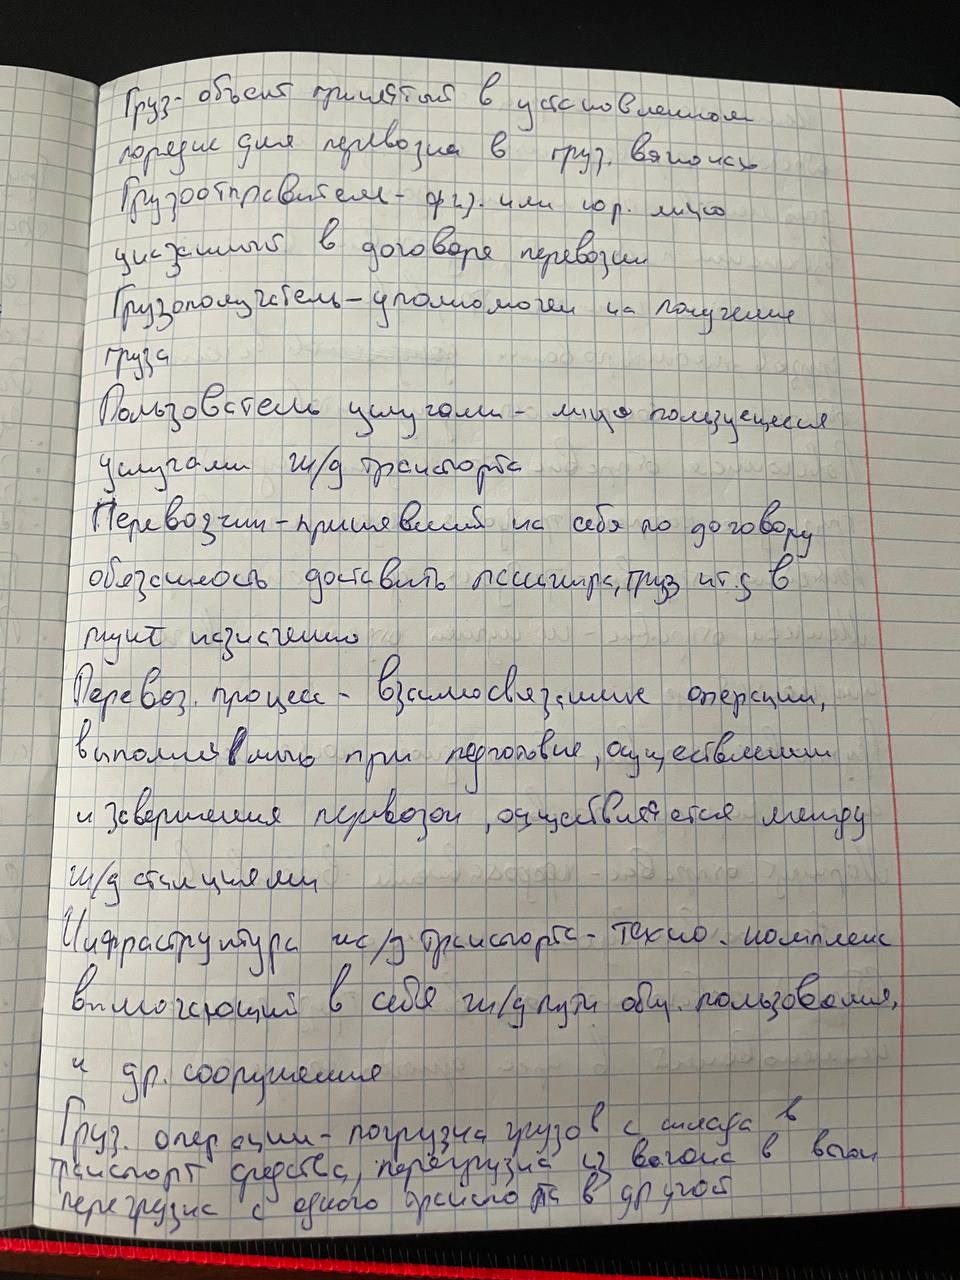 Груз - объект принятый в установленном
порядке для перевозки в груз. вагонах
Грузоотправитель - физ. или юр. лицо
указанный в договоре перевозки
Грузополучатель - уполномочен на получение
груза
Пользователь услугами - лицо пользующееся
услугами ж/д транспорта
Перевозчик - принявший на себя по договору
обязанность доставить пассажира, груз и т.д в
пункт назначению
Перевоз. процесс - взаимосвязанные операции,
при подготовке, осуществлении
и завершения перевозки, осуществляется между
ж/д станциями
Инфраструктура ж/д транспорта - техно. комплекс
включающий в себя ж/д пути общ. пользования,
и др. сооружения
Груз. операции - погрузка грузов с склада в
транспорт средства, перегрузка из вагона в вагон
перегрузка с одного транспорта в другой